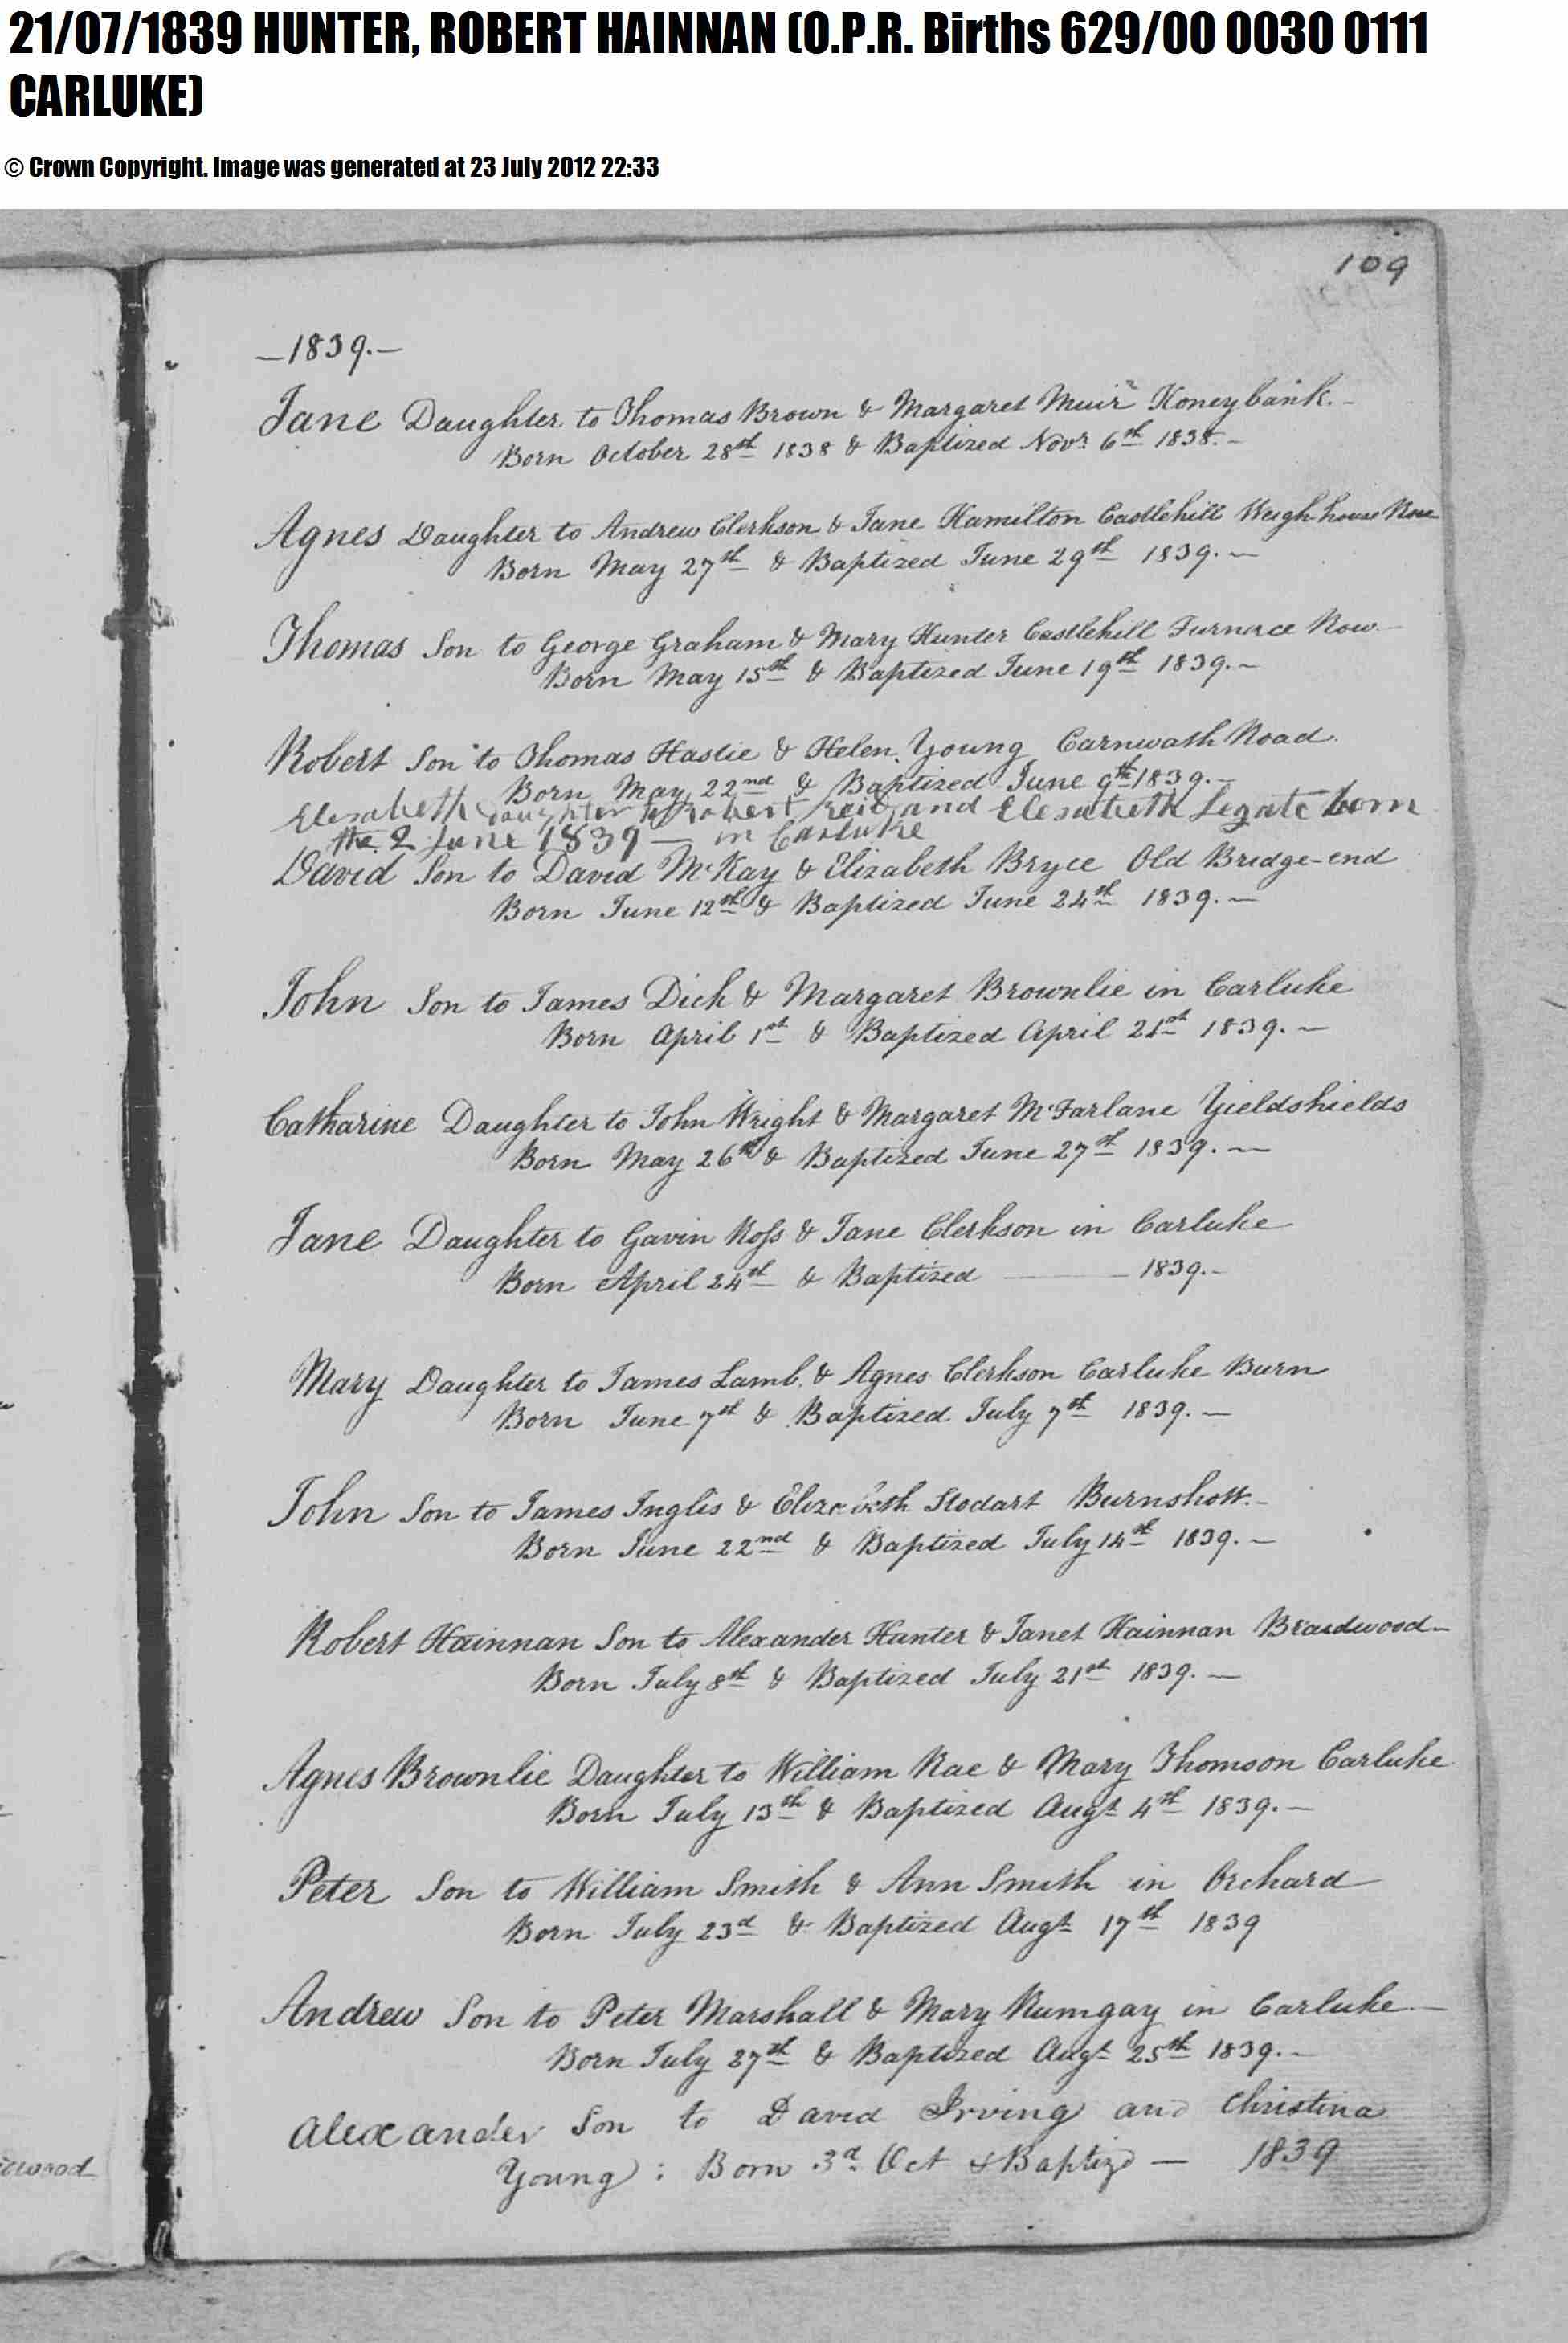 21/07/1839 HUNTER, ROBERT HAINNAN (O.P.R. Births 629/00 0030 0111
CARLUKE)
© Crown Copyright. Image was generated at 23 July 2012 22:33
109
—1839.—
Jane Daughter to Thomas Brown & Margaret Muir Honeybank.—
Born October 28th 1838 & Baptized Novr 6th 1838.—
Agnes Daughter to Andrew Clerkson & Jane Hamilton Castlehill Weigh house Row
Born May 27th & Baptized June 29th 1839.—
Thomas Son to George Graham & Mary Hunter Castlehill Furnace Row—
Born May 15th & Baptized June 19th 1839.—
Robert Son to Thomas Hastie & Helen Young Carnwath Road.
Born May 22nd & Baptized June 9th 1839.—
Elesabeth daughter to Robert Reid and Elesabeth Legate born
the 2 June 1839 — in Carluke
David Son to David McKay & Elizabeth Bryce Old Bridge-end
Born June 12th & Baptized June 24th 1839.—
John Son to James Dick & Margaret Brownlie in Carluke
Born April 1st & Baptized April 21st 1839.—
Catharine Daughter to John Wright & Margaret McFarlane Yieldshields
Born May 26th & Baptized June 27th 1839.—
Jane Daughter to Gavin Ross & Jane Clerkson in Carluke
Born April 24th & Baptized ——— 1839.—
Mary Daughter to James Lamb & Agnes Clerkson Carluke Burn
Born June 7th & Baptized July 7th 1839.—
John Son to James Inglis & Elizabeth Stodart Burnshott.—
Born June 22nd & Baptized July 14th 1839.—
Robert Hainnan Son to Alexander Hunter & Janet Hainnan Braidwood—
Born July 8th & Baptized July 21st 1839.—
Agnes Brownlie Daughter to William Rae & Mary Thomson Carluke
Born July 13th & Baptized Augt 4th 1839.—
Peter Son to William Smith & Ann Smith in Orchard
Born July 23d & Baptized Augt 17th 1839
Andrew Son to Peter Marshall & Mary Rumgay in Carluke—
Born July 27th & Baptized Augt 25th 1839.—
Alexander Son to David Irving and Christina
Young : Born 3d Oct & Baptizd — 1839